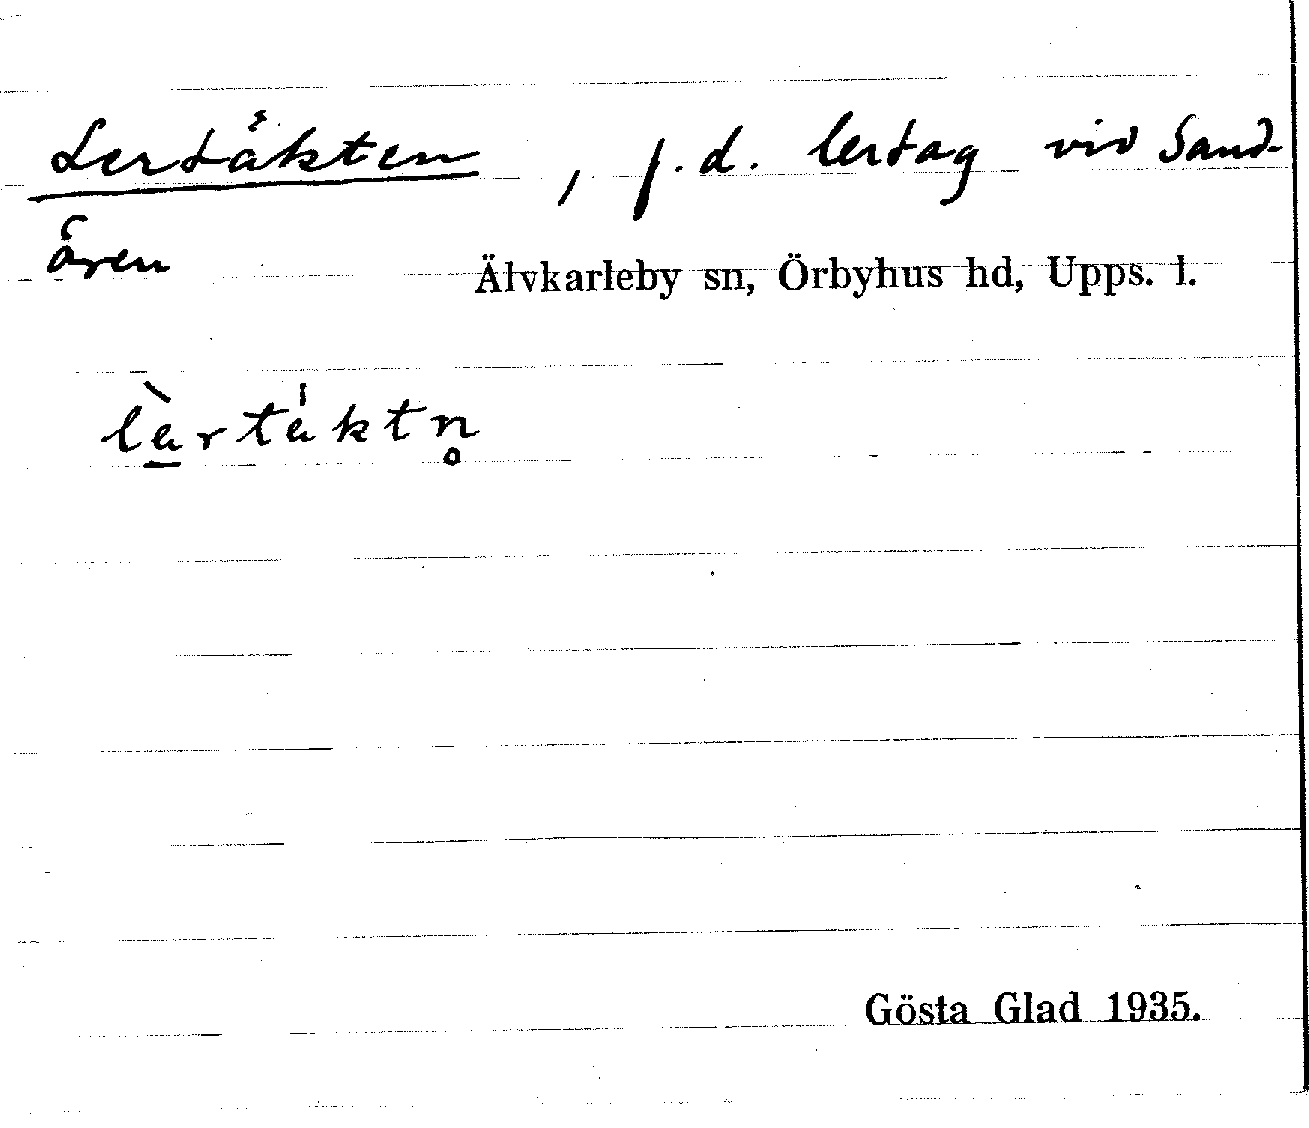 Lertäkten, f.d. lertag vid Sand-
ören
Älvkarleby sn, Örbyhus hd, Upps. l.
Gösta Glad 1935.